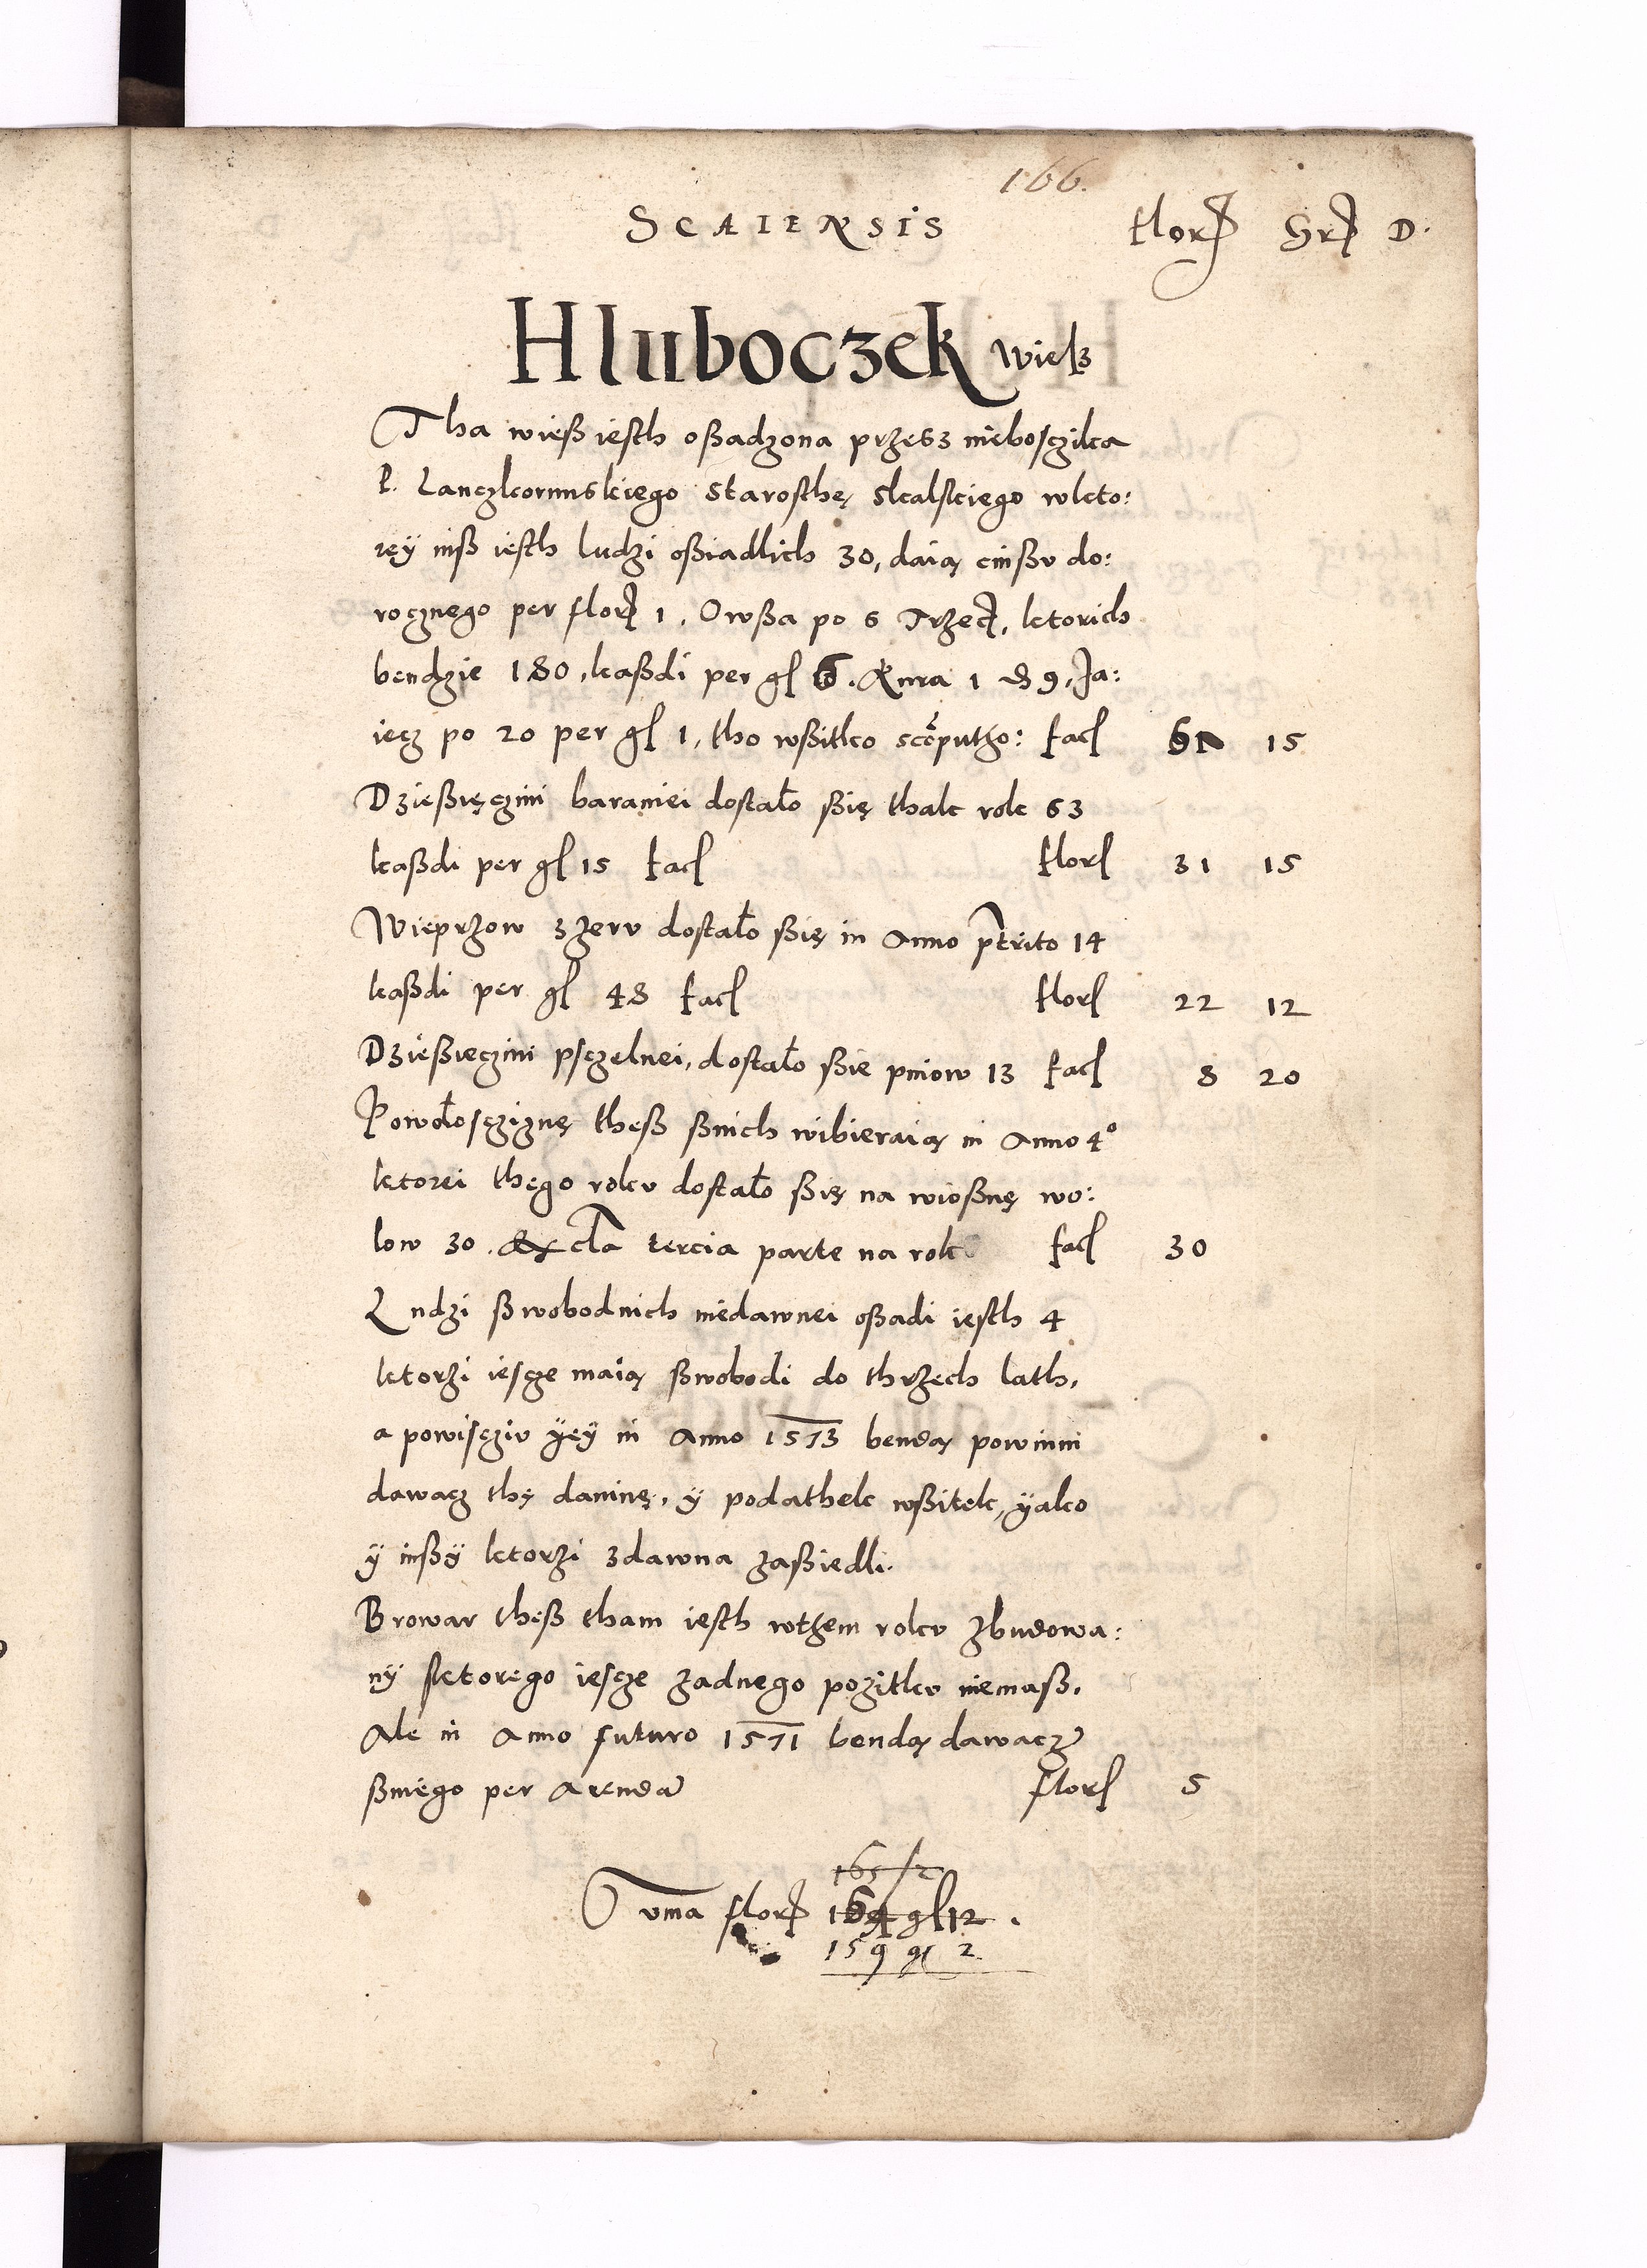 166.
SCAIENSIS florꝭ Grꝭ D.
Hluboczek wiesz
Tha wieß iesth oßadzona przesz nieboszczika
P. Lanczkorunskiego Starosthę skalskiego wkto:
rey niß iesth ludzi oßiadlich 30, daią cinßu do:
rocznego per florꝭ 1, Owßa po 6 Trzecꝭ, ktorich
bendzie 180, kaßdi per gl 6. Kura 1 d 9, Ja:
iecz po 20 per gl 1, tho wßitko scōputho: facſ 61 15
Dzießięczini baraniei dostało ßię thak rok 63
kaßdi per gl 15 facſ florſ 31 15
Wieprzow zzeru dostało ßię in Anno ptrito 14
kaßdi per gl 48 facſ florſ 22 12
Dzießieczini psczelnei, dostało ßie pniow 13 facſ 8 20
Powołoscziznę theß ßnich wibieraią in Anno 4º
ktorei thego roku dostało ßię na wioßnę wo:
low 30. Excta tercia parte na rok facſ 30
Ludzi ßwobodnich niedawnei oßadi iesth 4
ktorzi iescze maią ßwobodi do thrzech lath,
a powisciu yey in Anno 1573 bendą powinni
dawacz thę daninę, y podathek wßitek, yako
y inßy ktorzi zdawna zaßiedli.
Browar theß tham iesth wthem roku zbudowa:
ny sktorego iescze zadnego pozitku niemaß,
Ale in Anno futuro 1571 bendą dawacz
ßniego per Arenda florſ 5
165/2
Suma florꝭ 164 gl 12.
159 gl 2.